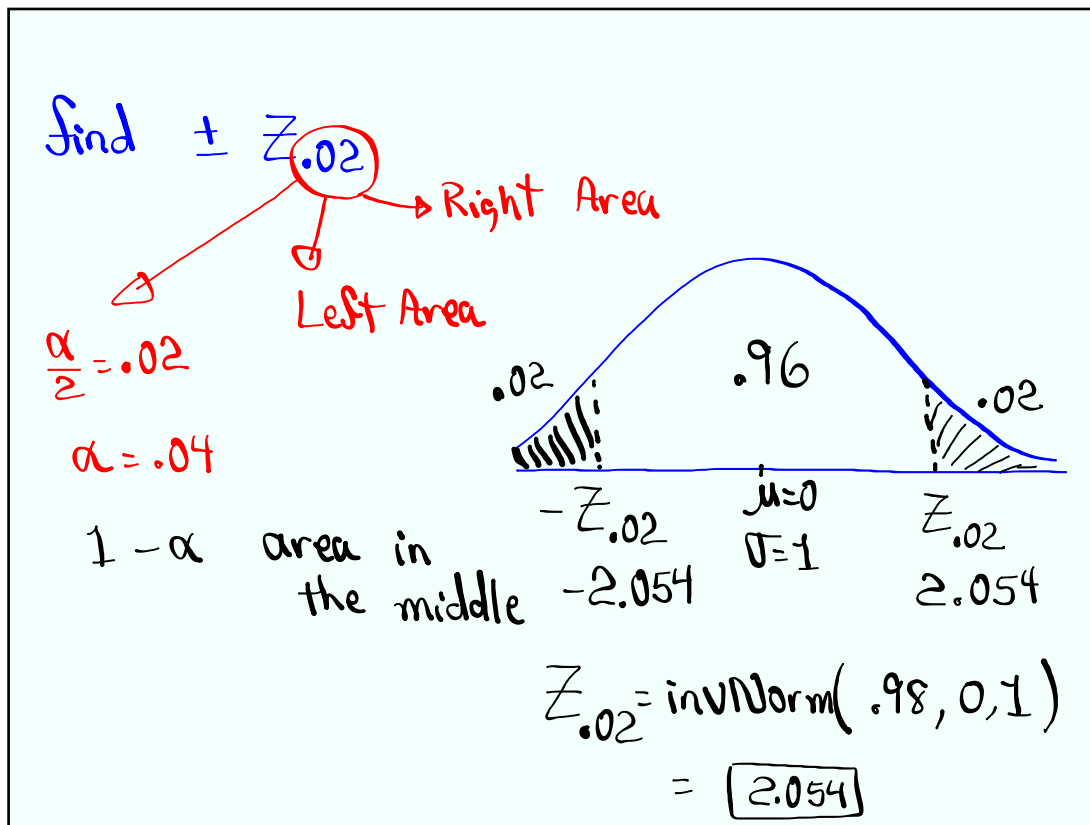 find ± Z.02
Right Area
Left Area
α/2 = .02
α = .04
1 - α area in
the middle
.02
.96
.02
-Z.02
μ=0
Z.02
σ=1
-2.054
2.054
Z.02 = invNorm( .98, 0, 1 )
= 2.054